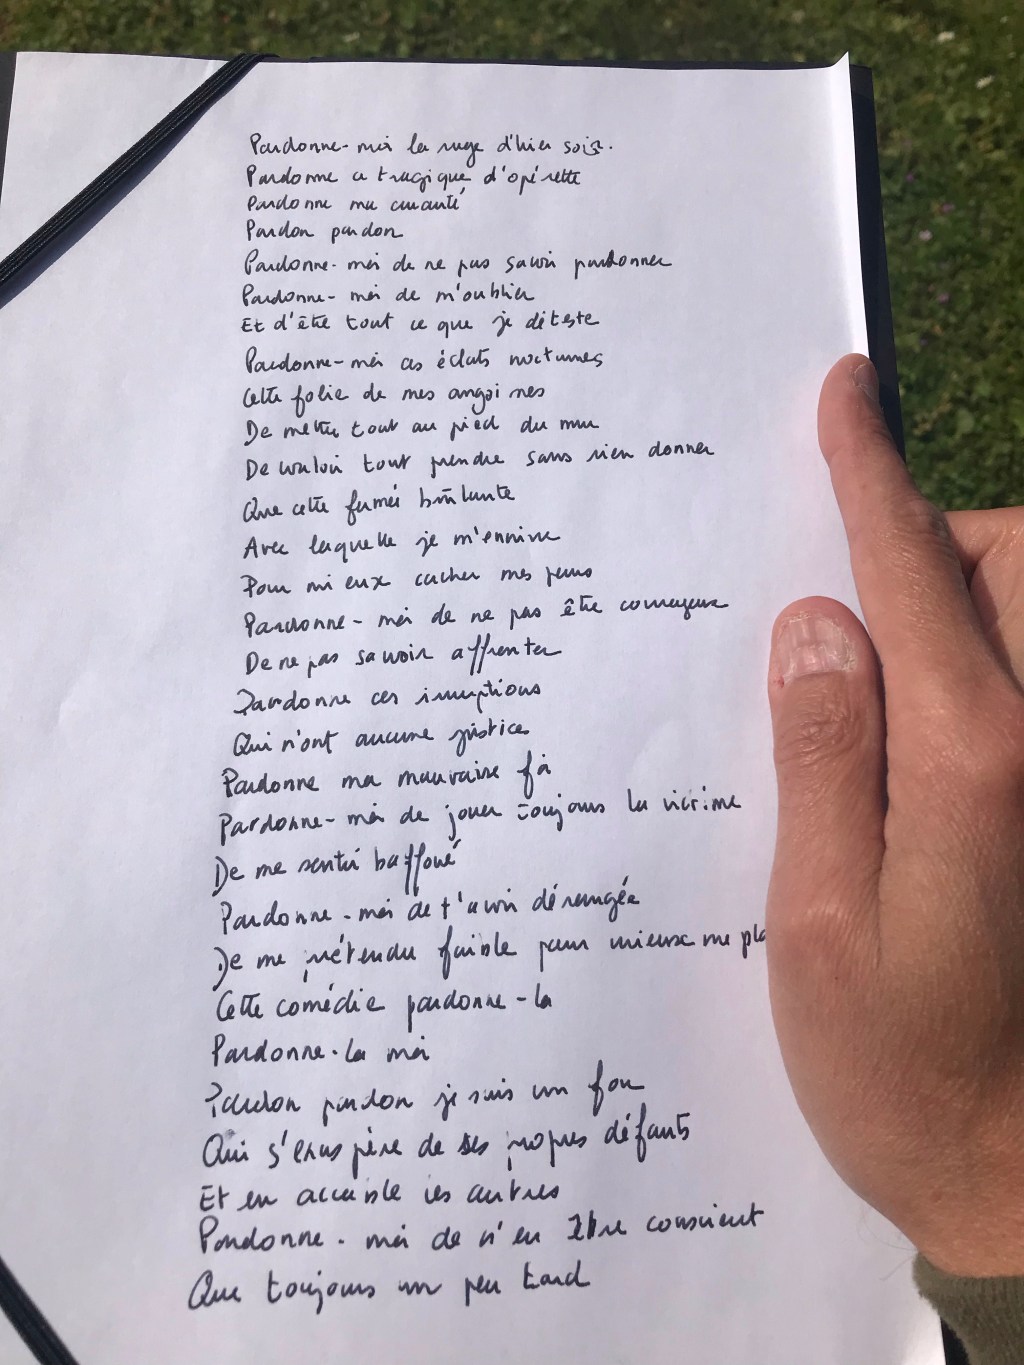 Pardonne-moi la rage d'hier soir.
Pardonne ce tragique d'opérette
Pardonne ma cruauté
Pardon pardon
Pardonne-moi de ne pas savoir pardonner
Pardonne-moi de m'oublier
Et d'être tout ce que je déteste
Pardonne-moi ces éclats nocturnes
Cette folie de mes angoisses
De mettre tout au pied du mur
De vouloir tout prendre sans rien donner
Que cette fumée brûlante
Avec laquelle je m'ennivre
Pour mieux cacher mes peurs
Pardonne-moi de ne pas être courageux
De ne pas savoir affronter
Pardonne ces irruptions
Qui n'ont aucune justice
Pardonne ma mauvaise foi
Pardonne-moi de jouer toujours la victime
De me sentir baffoué
Pardonne-moi de t'avoir dérangée
De me prétendre faible pour mieux me pla
Cette comédie pardonne-la
Pardonne-la moi
Pardon pardon je suis un fou
Qui s'exaspère de ses propres défauts
Et en accable les autres
Pardonne-moi de n'en être conscient
Que toujours un peu tard